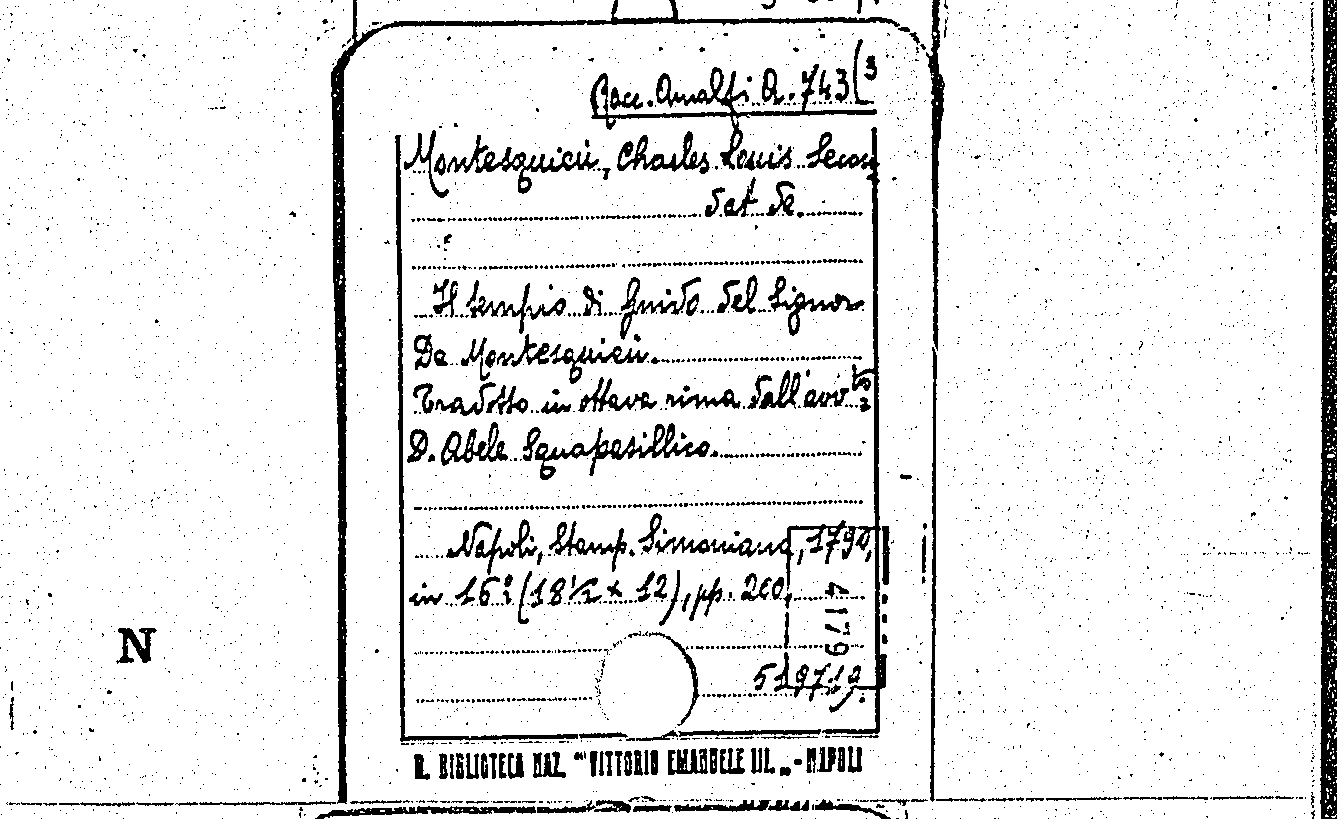 Racc. Amalfi A. 743(3
Montesquieu, Charles Louis Secon
dat de.
Il tempio di Gnido del Signor
De Montesquieu.
Tradotto in ottava rima dall'avv.to
D. Abele Squapasillico.
Napoli, Stamp. Simoniana, 1790,
in 16° (18 1/2 x 12), pp. 200.
4179
519719.
R. BIBLIOTECA NAZ. "VITTORIO EMANUELE III." - NAPOLI
N